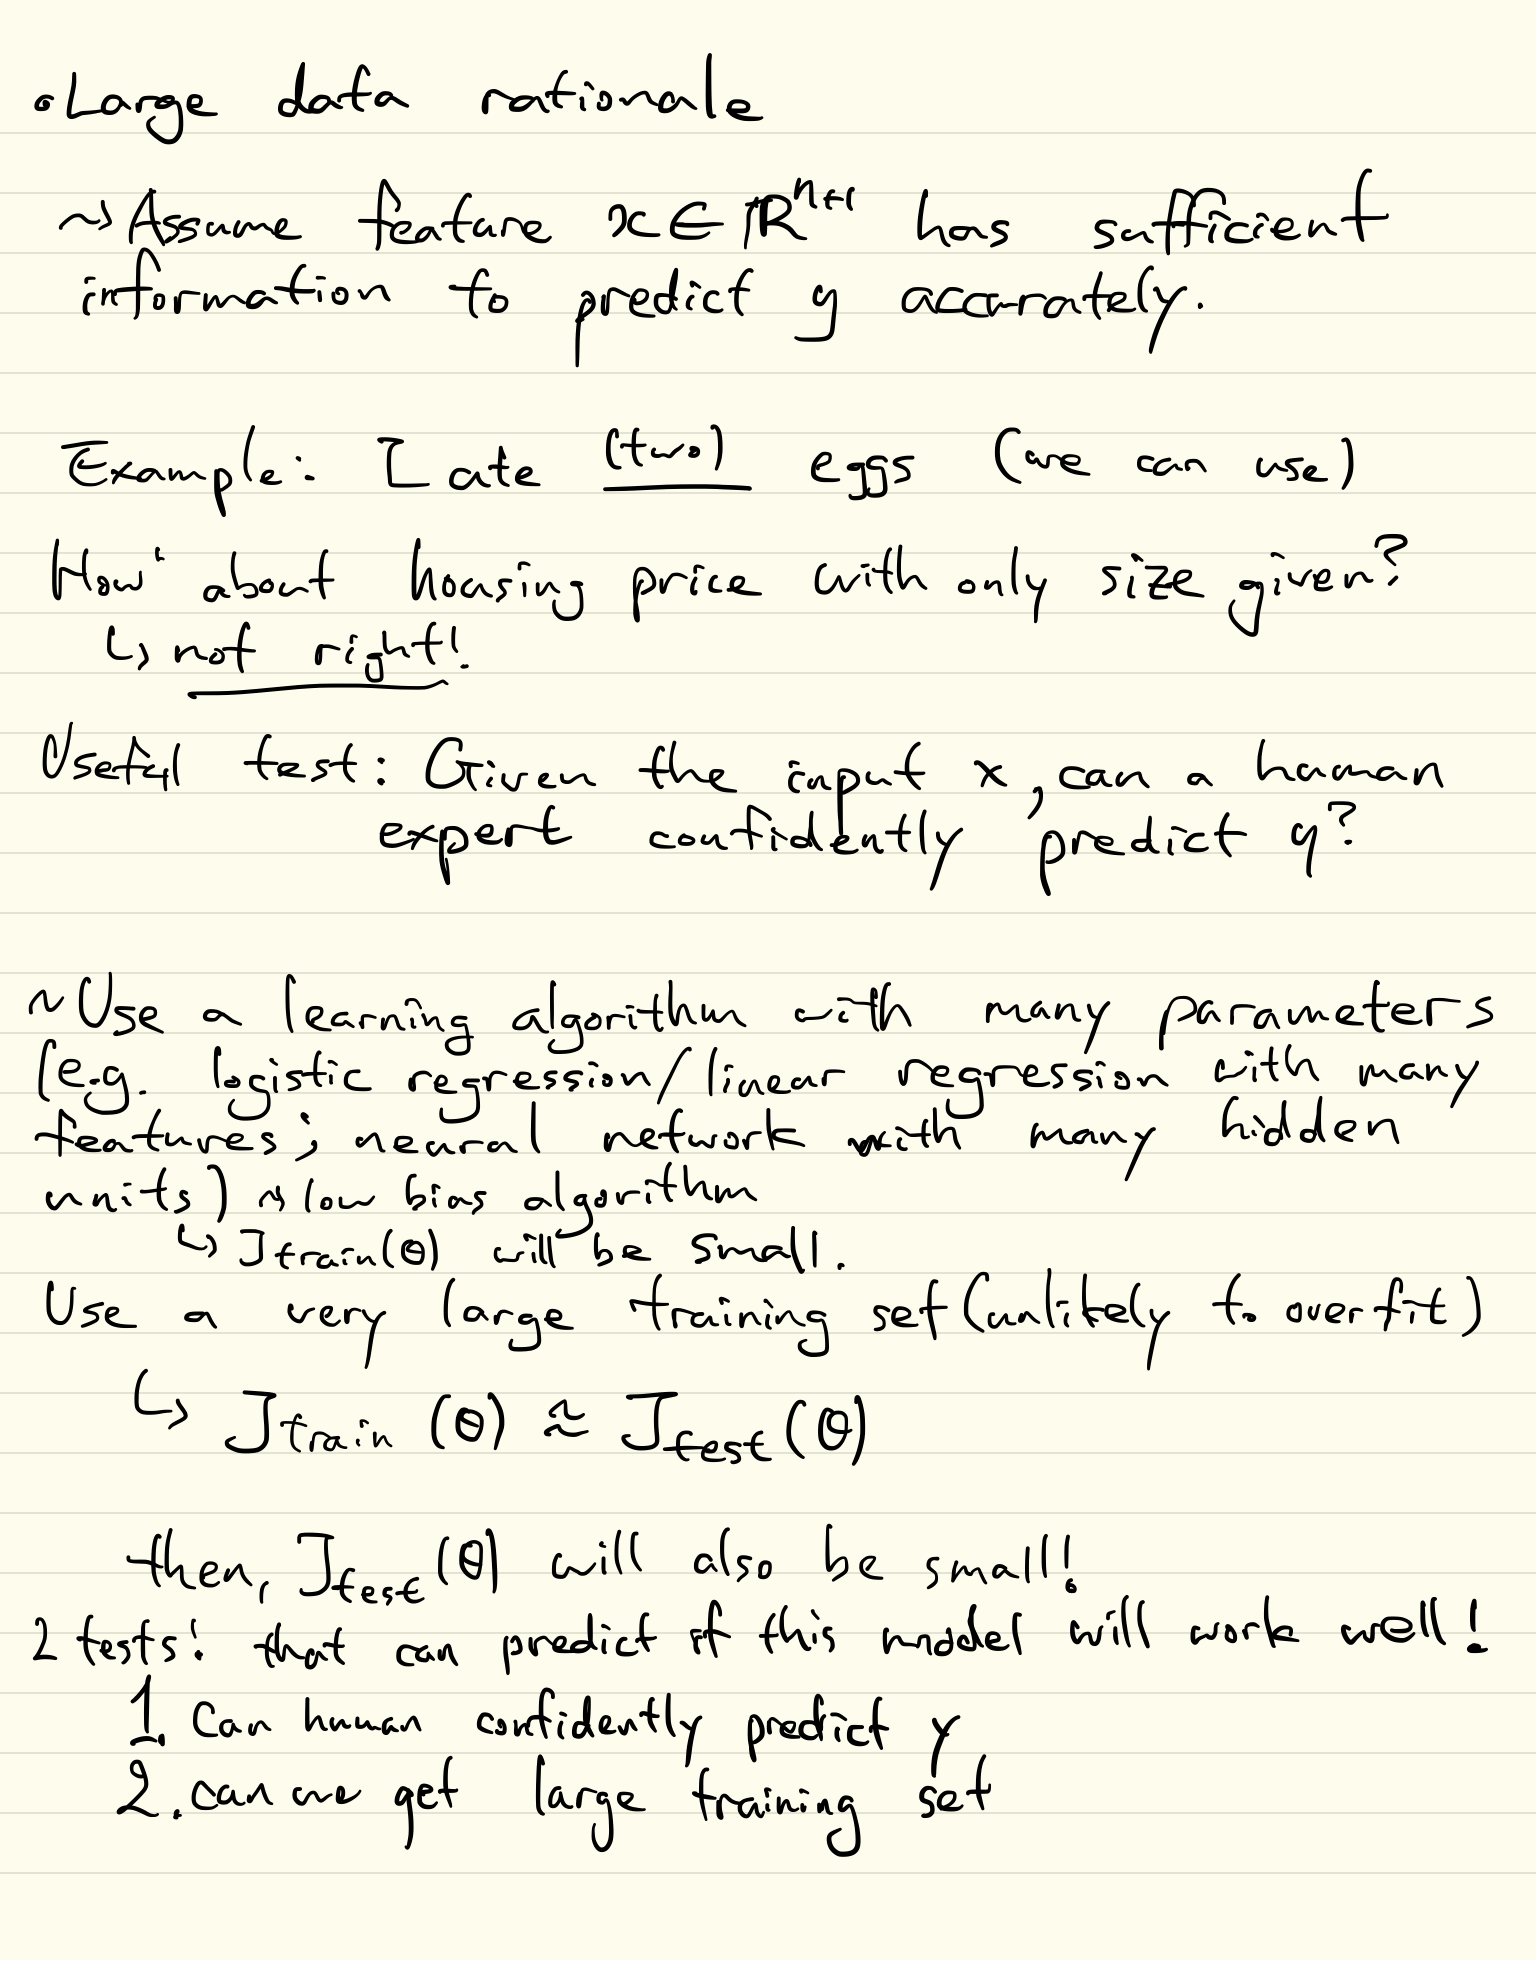 • Large data rationale
~> Assume feature x ∈ ℝⁿ⁺¹ has sufficient
information to predict y accurately.
Example: I ate (two) eggs (we can use)
How about housing price with only size given?
↳ not right!
Useful test: Given the input x, can a human
expert confidently predict y?
~ Use a learning algorithm with many parameters
(e.g. logistic regression/linear regression with many
features; neural network with many hidden
units) ~> low bias algorithm
↳ Jtrain(θ) will be small.
Use a very large training set (unlikely to overfit)
↳ Jtrain (θ) ≈ Jtest (θ)
then, Jtest (θ) will also be small!
2 tests: that can predict if this model will work well!
1. Can human confidently predict y
2. can we get large training set